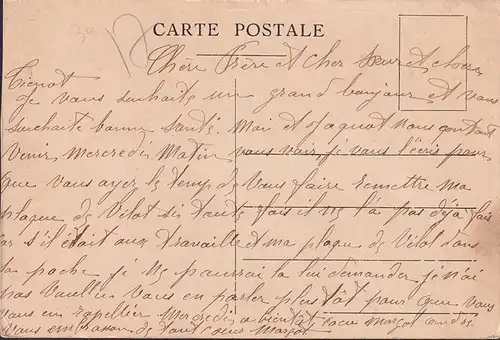 CARTE POSTALE
Chère Frère et Cher Sœur et chère
Je vous souhaite un grand bonjour et vous
souhaite bonne santé. Moi et Jaquot nous
venir Mercredi Matin vous voir je vous l'écris pour
que vous ayez le temp de vous faire remettre ma
plaque de Vélot si toute fois il ne l'a pas déjà fais
s'il était aux travaille et ma plaque de Vélot dans
sa poche je ne pourrai la lui demander je n'ai
pas voullu vous en parler plus tôt pour que vous
vous en rapellier Mercredi a bientôt
vous embrasson de tout cœur Margot